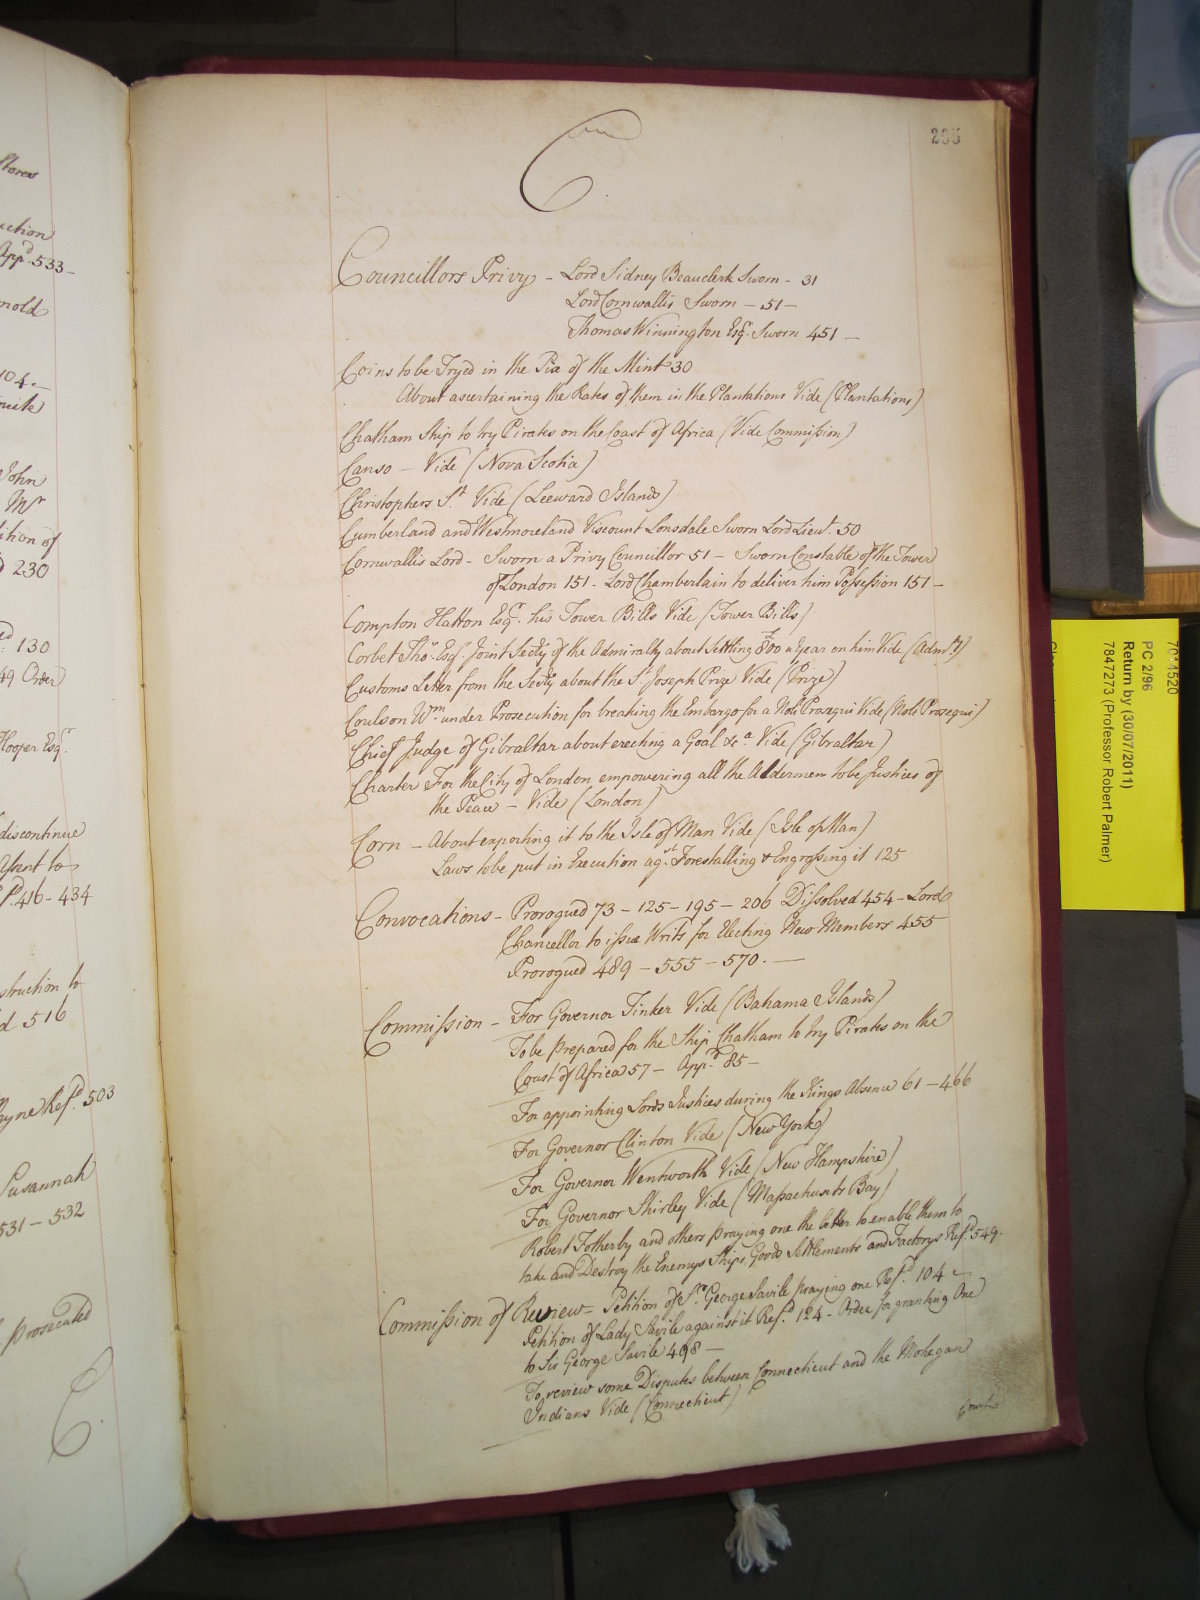 Stores
uction
App.d 533-
nold
104.-
John
Mr
ition of
230
130
49 Order
Hooper Esqr.
discontinue
Assent to
416-434
struction to
516
yne Ref.d 503
Susannah
531-532
prosecuted
C.
C.
Councillors Privy - Lord Sidney Beauclerk Sworn - 31
Lord Cornwallis Sworn - 51 -
Thomas Winnington Esqr. Sworn 451 -
Coins to be Tryed in the Pix of the Mint 30
About ascertaining the Rates of them in the Plantations Vide (Plantations)
Chatham Ship to try Pirates on the Coast of Africa (Vide Commission)
Canso - Vide (Nova Scotia)
Christophers St. Vide (Leeward Islands)
Cumberland and Westmoreland Viscount Lonsdale Sworn Lord Lieut. 50
Cornwallis Lord - Sworn a Privy Councillor 51 - Sworn Constable of the Tower
of London 151 - Lord Chamberlain to deliver him Possession 151 -
Compton Hatton Esqr. his Tower Bills Vide (Tower Bills)
Corbet Thos. Esqr. Joint Secty of the Admiralty about Settling 800 a Year on him Vide (Admty)
Customs Letter from the Secty about the St. Joseph Prize Vide (Prize)
Coulson Wm. under Prosecution for breaking the Embargo for a Noli Prosequi Vide (Noli Prosequi)
Chief Judge of Gibraltar about erecting a Goal &ca. Vide (Gibraltar)
Charter For the City of London empowering all the Aldermen to be Justices of
the Peace - Vide (London)
Corn - About exporting it to the Isle of Man Vide (Isle of Man)
Laws to be put in Execution agst. Forestalling & Engrossing it 125
Convocations - Prorogued 73 - 125 - 195 - 206 Dissolved 454 - Lord
Chancellor to issue Writs for Electing New Members 455
Prorogued 489 - 555 - 570. -
Commission - For Governor Tinker Vide (Bahama Islands)
To be prepared for the Ship Chatham to try Pirates on the
Coast of Africa 57 - App.d 85 -
For appointing Lords Justices during the Kings Absence 61 - 466
For Governor Clinton Vide (New York)
For Governor Wentworth Vide (New Hampshire)
For Governor Shirley Vide (Massachusets Bay)
Robert Fotherby and others praying one the better to enable them to
take and Destroy the Enemys Ships, Goods Settlements and Factorys Ref.d 549.
Commission of Review - Petition of Sr. George Savile praying one Ref.d 104 -
Petition of Lady Savile against it Ref.d 124 - Order for granting One
to Sir George Savile 498 -
To review some Disputes between Connecticut and the Mohegan
Indians Vide (Connecticut)
PC 2/96
Return by (30/07/2011)
7847273 (Professor Robert Palmer)